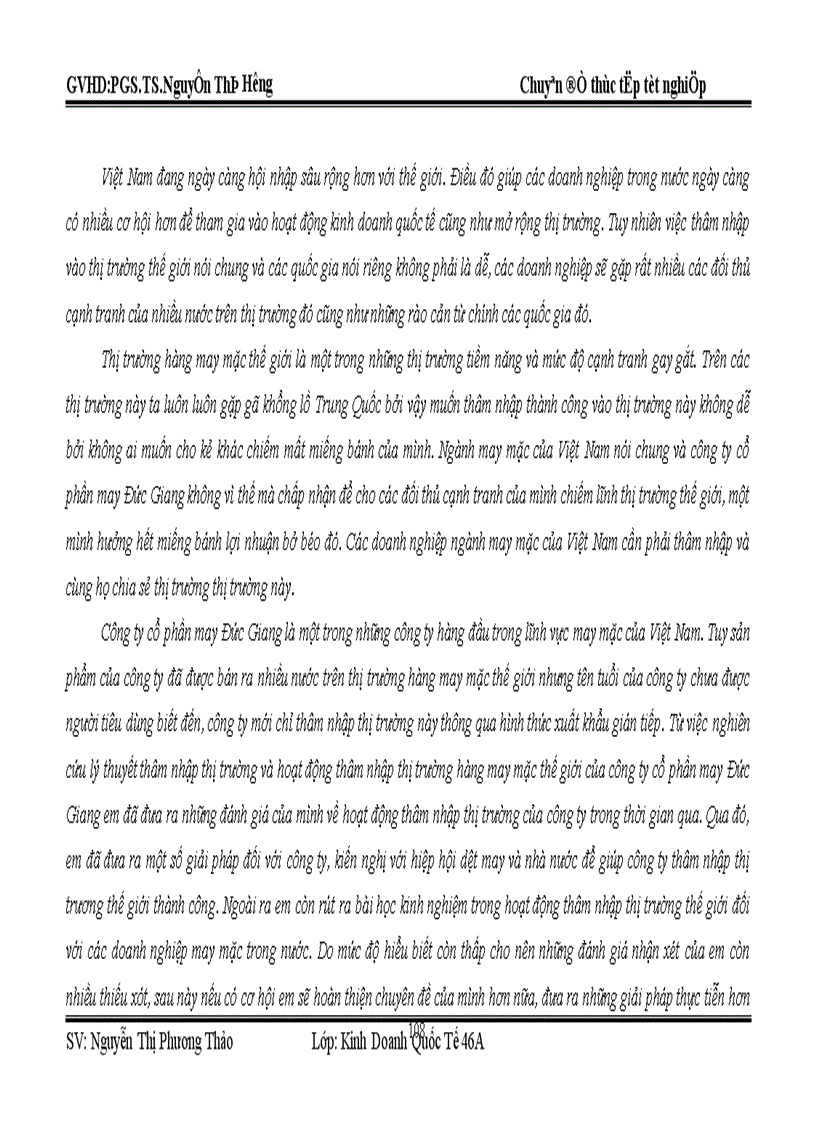 GVHD:PGS.TS.NguyÔn ThÞ Hêng Chuyªn ®Ò thùc tËp tèt nghiÖp
Việt Nam đang ngày càng hội nhập sâu rộng hơn với thế giới. Điều đó giúp các doanh nghiệp trong nước ngày càng
có nhiều cơ hội hơn để tham gia vào hoạt động kinh doanh quốc tế cũng như mở rộng thị trường. Tuy nhiên việc thâm nhập
vào thị trường thế giới nói chung và các quốc gia nói riêng không phải là dễ, các doanh nghiệp sẽ gặp rất nhiều các đối thủ
cạnh tranh của nhiều nước trên thị trường đó cũng như những rào cản từ chính các quốc gia đó.
Thị trường hàng may mặc thế giới là một trong những thị trường tiềm năng và mức độ cạnh tranh gay gắt. Trên các
thị trường này ta luôn luôn gặp gã khổng lồ Trung Quốc bởi vậy muốn thâm nhập thành công vào thị trường này không dễ
bởi không ai muốn cho kẻ khác chiếm mất miếng bánh của mình. Ngành may mặc của Việt Nam nói chung và công ty cổ
phần may Đức Giang không vì thế mà chấp nhận để cho các đối thủ cạnh tranh của mình chiếm lĩnh thị trường thế giới, một
mình hưởng hết miếng bánh lợi nhuận bở béo đó. Các doanh nghiệp ngành may mặc của Việt Nam cần phải thâm nhập và
cùng họ chia sẻ thị trường thị trường này.
Công ty cổ phần may Đức Giang là một trong những công ty hàng đầu trong lĩnh vực may mặc của Việt Nam. Tuy sản
phẩm của công ty đã được bán ra nhiều nước trên thị trường hàng may mặc thế giới nhưng tên tuổi của công ty chưa được
người tiêu dùng biết đến, công ty mới chỉ thâm nhập thị trường này thông qua hình thức xuất khẩu gián tiếp. Từ việc nghiên
cứu lý thuyết thâm nhập thị trường và hoạt động thâm nhập thị trường hàng may mặc thế giới của công ty cổ phần may Đức
Giang em đã đưa ra những đánh giá của mình về hoạt động thâm nhập thị trường của công ty trong thời gian qua. Qua đó,
em đã đưa ra một số giải pháp đối với công ty, kiến nghị với hiệp hội dệt may và nhà nước để giúp công ty thâm nhập thị
trương thế giới thành công. Ngoài ra em còn rút ra bài học kinh nghiệm trong hoạt động thâm nhập thị trường thế giới đối
với các doanh nghiệp may mặc trong nước. Do mức độ hiểu biết còn thấp cho nên những đánh giá nhận xét của em còn
nhiều thiếu xót, sau này nếu có cơ hội em sẽ hoàn thiện chuyên đề của mình hơn nữa, đưa ra những giải pháp thực tiễn hơn
108
SV: Nguyễn Thị Phương Thảo Lớp: Kinh Doanh Quốc Tế 46A